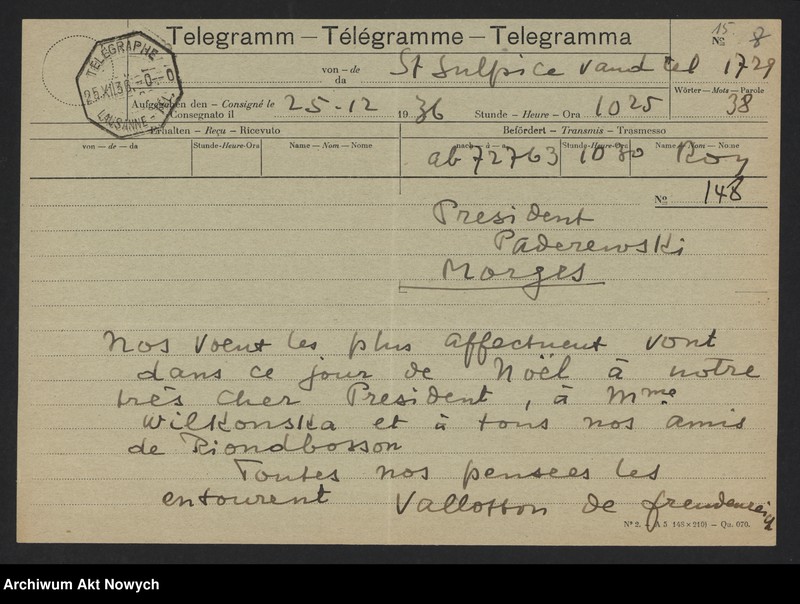 15
Telegramm — Télégramme — Telegramma
№ 8
TELEGRAPHE
25.XII.36
LAUSANNE
von – de
da
St Sulpice Vaud tel 1729
Wörter – Mots – Parole
38
Aufgegeben den – Consigné le
Consegnato il
25-12 1936
Stunde – Heure – Ora 1025
Erhalten – Reçu – Ricevuto
Befördert – Transmis – Trasmesso
von — de — da
Stunde-Heure-Ora
Name – Nom – Nome
nach – à – a
Stunde-Heure-Ora
Name – Nom – Nome
ab 72763 1030 Roy
№ 148
President
Paderewski
Morges
Nos voeux les plus affectueux vont
dans ce jour de Noël à notre
très cher President, à Mme
Wilkonska et à tous nos amis
de Riondbosson
Toutes nos pensees les
entourent Vallotton de freudenreich
N° 2. – A 5 (148 × 210) – Qu. 070.
Archiwum Akt Nowych